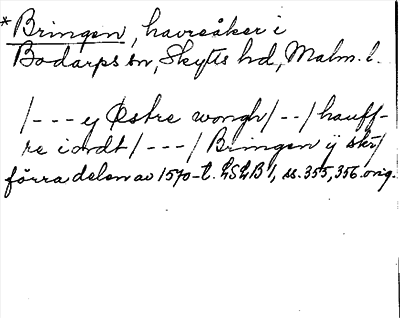 *Bringen, havreåker i
Bodarps sn, Skytts hd, Malm. l.
/--- y Østre wongh/--/hauff-
re iordt/---/Bringen ÿ skt/
förra delen av 1570-t. LSLB 1, ss. 355, 356 orig.